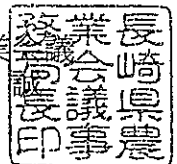 長崎県農
業会議事
務局長印